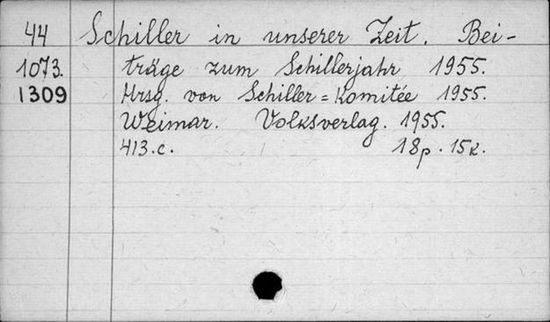 44 Schiller in unserer Zeit. Bei-
1073. träge zum Schillerjahr 1955.
1309 Hrsg. von Schiller=Komitée 1955.
Weimar. Volksverlag. 1955.
413.c. 18p. 15k.